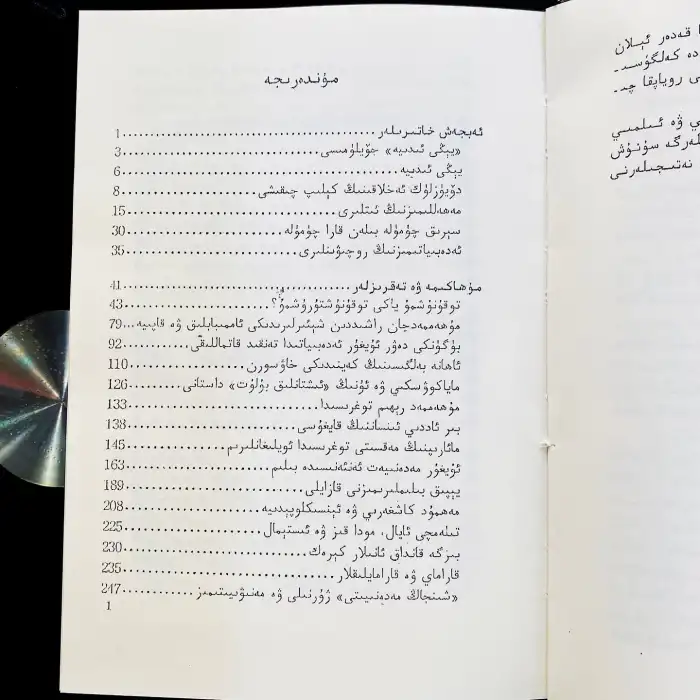 مۇندەرىجە
ئەبجەش خاتىرىلەر ........................................ 1
«يېڭى ئىدىيە» جۆيلۈمىسى ................................ 3
يېڭى ئىدىيە ................................ 6
دۆيۈزلۈك ئەخلاقىنىڭ كېلىپ چىقىشى ........................ 8
مەھەللىمىزنىڭ ئىتلىرى ................................ 15
سېرىق چۈمۈلە بىلەن قارا چۈمۈلە ........................ 30
ئەدەبىياتىمىزنىڭ روجىۋىنلىرى ........................ 35
مۇھاكىمە ۋە تەقرىزلەر ................................ 41
توقۇنۇشمۇ ياكى توقۇنۇشتۇرۇشمۇ؟ ........................ 43
مۇھەممەدجان راشىددىن شېئىرلىرىدىكى ئاممىبابلىق ۋە قاپىيە... 79
بۈگۈنكى دەۋر ئۇيغۇر ئەدەبىياتىدا تەنقىد قاتماللىقى ........ 92
ئاھانە بەلگىسىنىڭ كەينىدىكى خاۋسورن .................... 110
ماياكوۋسكىي ۋە ئۇنىڭ «ئىشتانلىق بۇلۇت» داستانى ........ 126
مۇھەممەد رېھىم توغرىسىدا ................................ 133
بىر ئاددىي ئىنساننىڭ قايغۇسى ........................ 138
مائارىپنىڭ مەقسىتى توغرىسىدا ئويلىغانلىرىم ................ 145
ئۇيغۇر مەدەنىيەت ئەنئەنىسىدە بىلىم .................... 163
يېپىق بىلىملىرىمىزنى قازايلى ........................ 189
مەھمۇد كاشغەرىي ۋە ئېنسىكلوپېدىيە .................... 208
تىلەمچى ئايال، مودا قىز ۋە ئىستېمال .................... 225
بىزگە قانداق ئانىلار كېرەك ............................ 230
قاراماي ۋە قارامايلىقلار ............................ 235
«شىنجاڭ مەدەنىيىتى» ژۇرنىلى ۋە مەنىۋىيىتىمىز ............ 247
1
قەدەر ئېلان
دە كەلگۈسى-
ى روياپقا چى-
ي ۋە ئىلمىي
لەرگە سۇنۇش
نەتىجىلەرنى